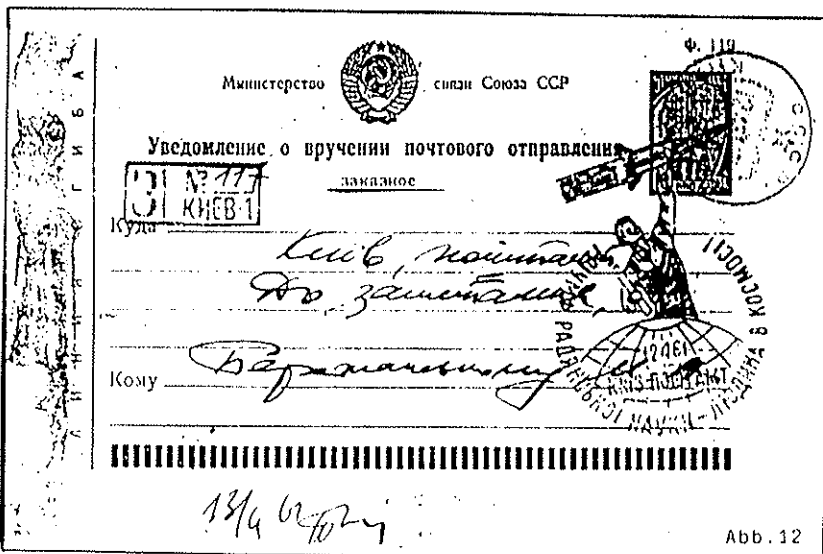 Ф. 119
Министерство связи Союза ССР
Уведомление о вручении почтового отправления
заказное
З № 117
КИЕВ-1
Куда
Київ, поштамт
До запитання
Кому
ЛИНИЯ СГИБА
РАДЯНСЬКОЇ НАУКИ - ЛЮДИНА В КОСМОСІ!
12461
КИЇВ-ПОШТАМТ
СССР
Abb.12